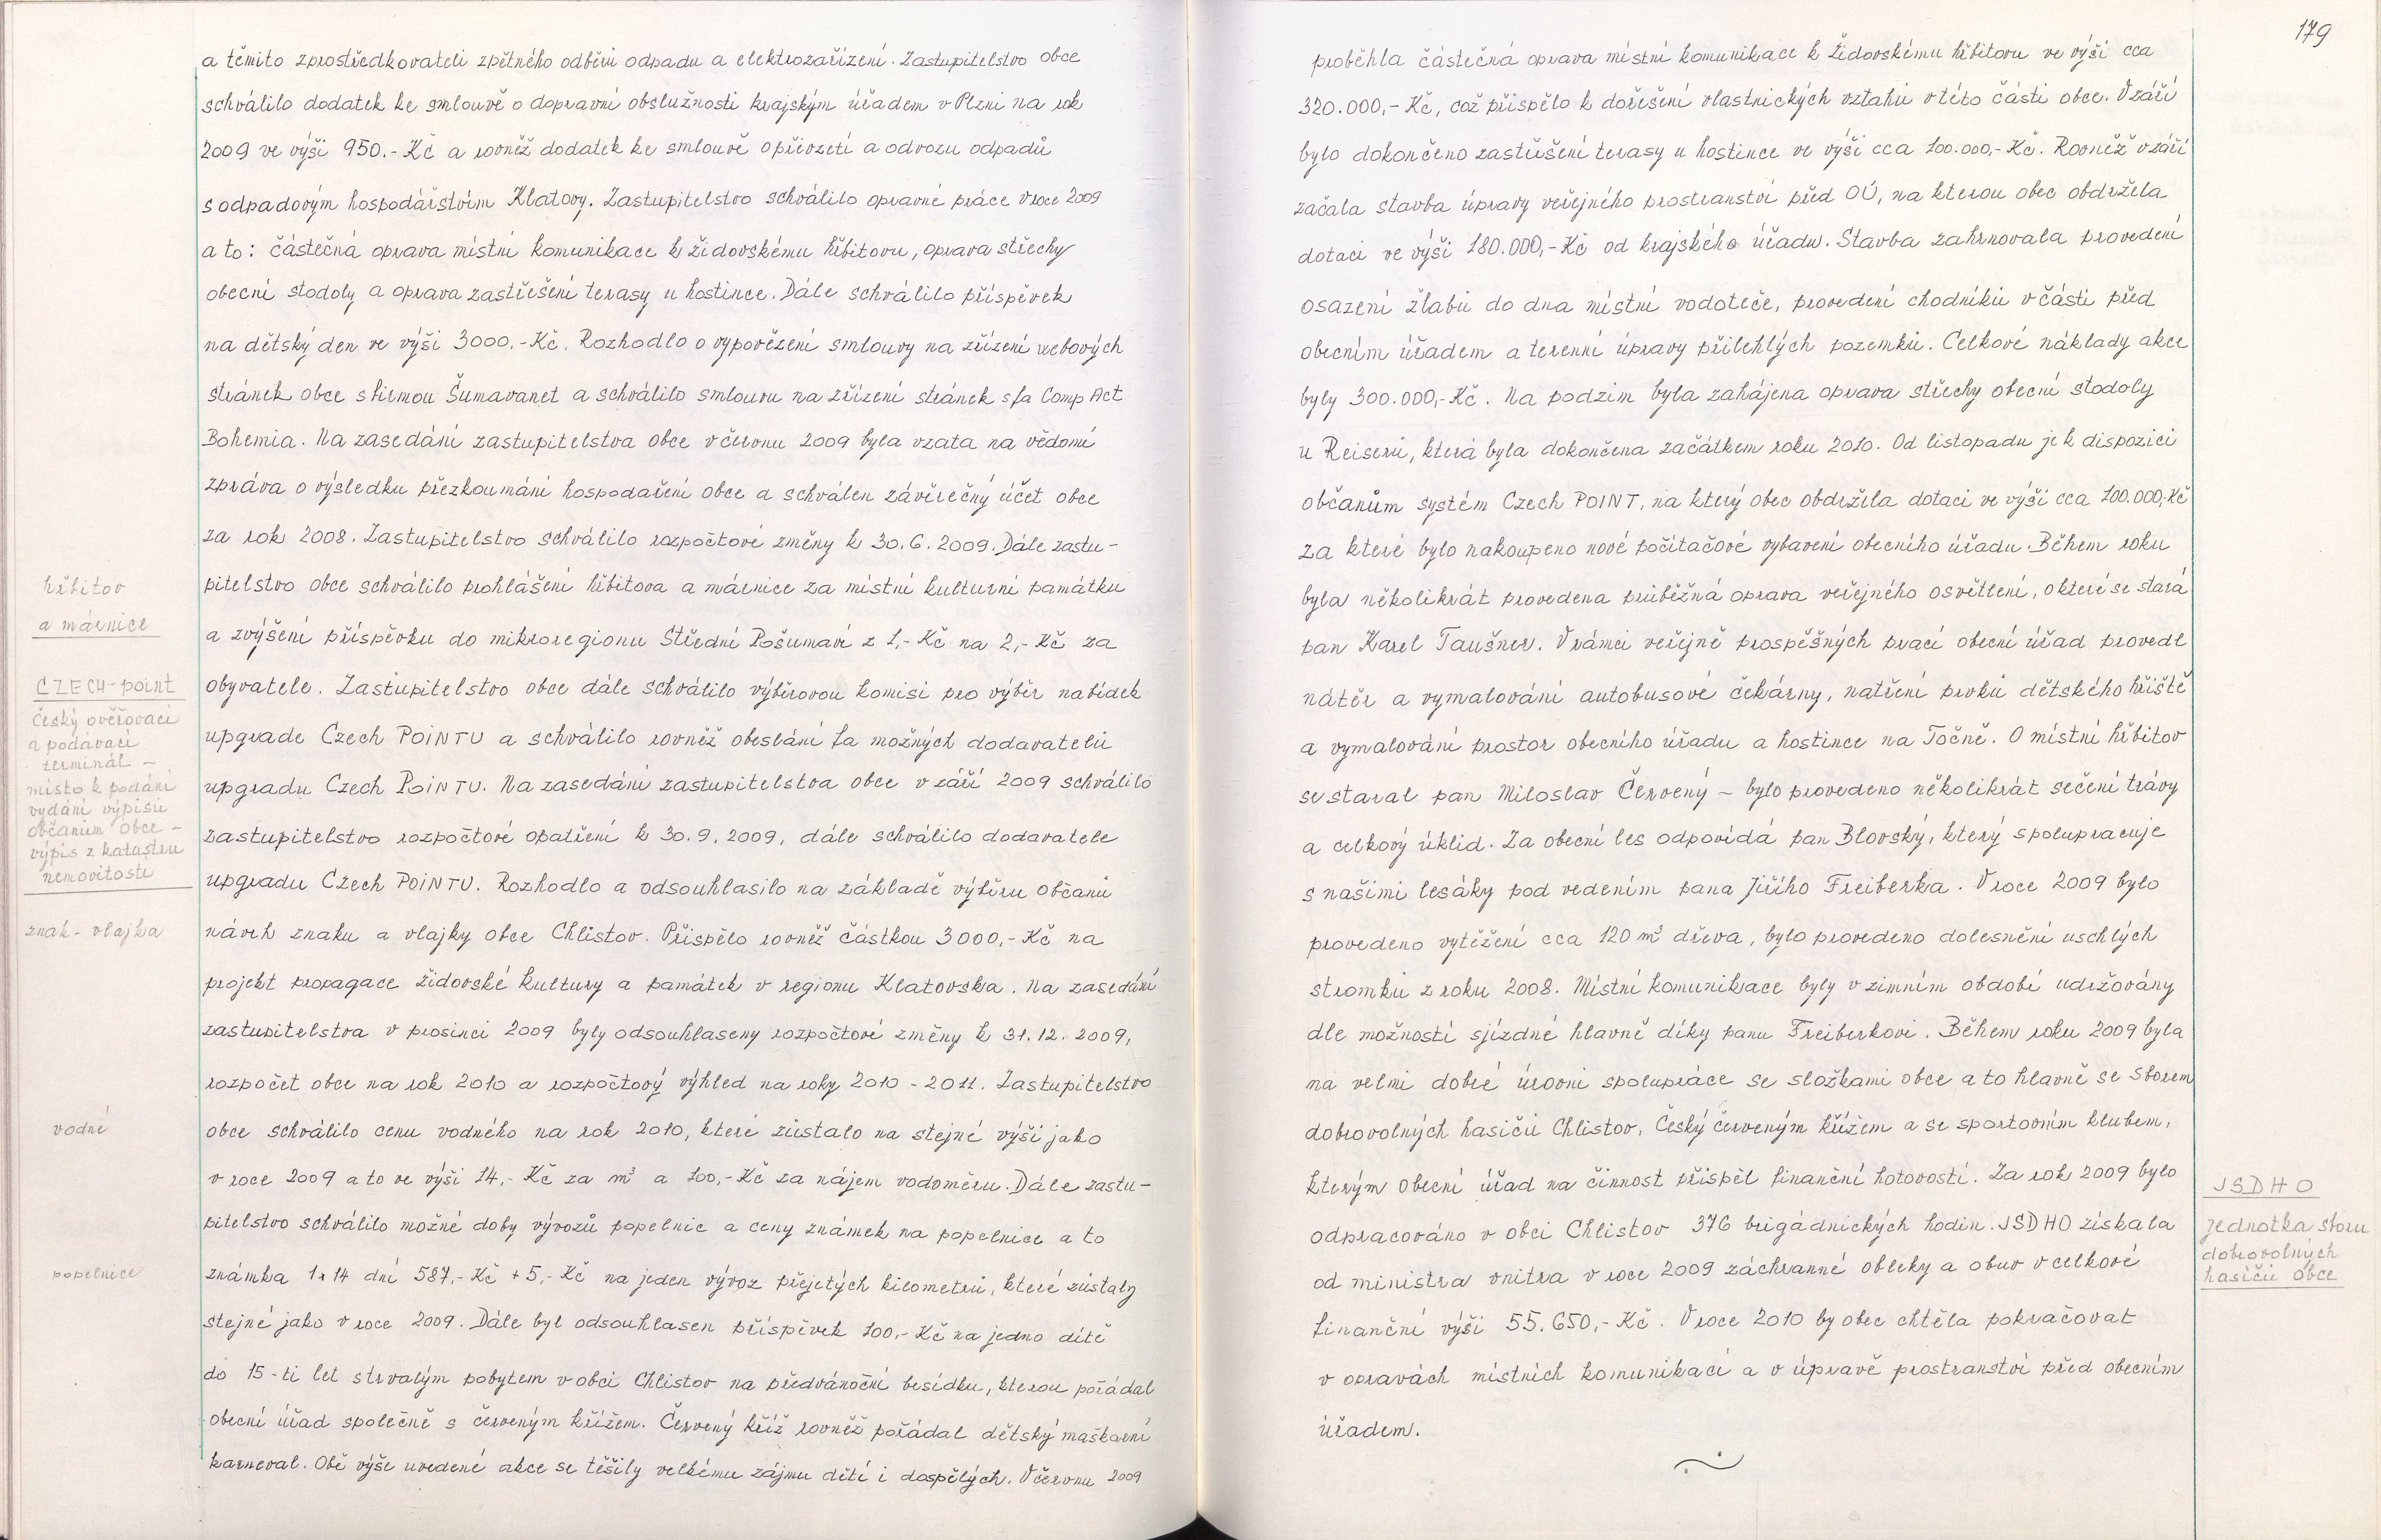 a těmito zprostředkovateli zpětného odběru odpadu a elektrozařízení. Zastupitelstvo obce
schválilo dodatek ke smlouvě o dopravní obslužnosti krajským úřadem v Plzni na rok
2009 ve výši 950.- Kč a rovněž dodatek ke smlouvě o převzetí a odvozu odpadů
s odpadovým hospodářstvím Klatovy. Zastupitelstvo schválilo opravné práce v roce 2009
a to: částečná oprava místní komunikace k židovskému hřbitovu, oprava střechy
obecní stodoly a oprava zastřešení terasy u hostince. Dále schválilo příspěvek
na dětský den ve výši 3000.- Kč. Rozhodlo o vypovězení smlouvy na zřízení webových
stránek obce s firmou Šumavanet a schválilo smlouvu na zřízení stránek s fa Comp Act
Bohemia. Na zasedání zastupitelstva obce v červnu 2009 byla vzata na vědomí
zpráva o výsledku přezkoumání hospodaření obce a schválen závěrečný účet obce
za rok 2008. Zastupitelstvo schválilo rozpočtové změny k 30.6.2009. Dále zastu-
pitelstvo obce schválilo prohlášení hřbitova a márnice za místní kulturní památku
a zvýšení příspěvku do mikroregionu Střední Pošumaví z 1,- Kč na 2,- Kč za
obyvatele. Zastupitelstvo obce dále schválilo výběrovou komisi pro výběr nabídek
upgrade Czech POINTU a schválilo rovněž obeslání fa možných dodavatelů
upgradu Czech POINTU. Na zasedání zastupitelstva obce v září 2009 schválilo
zastupitelstvo rozpočtové opatření k 30.9.2009, dále schválilo dodavatele
upgradu Czech POINTU. Rozhodlo a odsouhlasilo na základě výběru občanů
návrh znaku a vlajky obce Chlistov. Přispělo rovněž částkou 3000,- Kč na
projekt propagace židovské kultury a památek v regionu Klatovska. Na zasedání
zastupitelstva v prosinci 2009 byly odsouhlaseny rozpočtové změny k 31.12.2009,
rozpočet obce na rok 2010 a rozpočtový výhled na roky 2010 - 2011. Zastupitelstvo
obce schválilo cenu vodného na rok 2010, které zůstalo na stejné výši jako
v roce 2009 a to ve výši 14,- Kč za m³ a 100,- Kč za nájem vodoměru. Dále zastu-
pitelstvo schválilo možné doby vývozů popelnic a ceny známek na popelnice a to
známka 1x14 dní 587,- Kč + 5,- Kč na jeden vývoz přejetých kilometrů, které zůstaly
stejné jako v roce 2009. Dále byl odsouhlasen příspěvek 100,- Kč na jedno dítě
do 15-ti let s trvalým pobytem v obci Chlistov na předvánoční besídku, kterou pořádal
obecní úřad společně s červeným křížem. Červený kříž rovněž pořádal dětský maškarní
karneval. Obě výše uvedené akce se těšily velkému zájmu dětí i dospělých. V červnu 2009
hřbitov
a márnice
CZECH-point
český ověřovací
a podávací
terminál -
místo k podání
vydání výpisů
občanům obce -
výpis z katastru
nemovitostí
znak - vlajka
vodné
popelnice
179
proběhla částečná oprava místní komunikace k židovskému hřbitovu ve výši cca
320.000,- Kč, což přispělo k dořešení vlastnických vztahů v této části obce. V září
bylo dokončeno zastřešení terasy u hostince ve výši cca 100.000,- Kč. Rovněž v září
začala stavba úpravy veřejného prostranství před OÚ, na kterou obec obdržela
dotaci ve výši 180.000,- Kč od krajského úřadu. Stavba zahrnovala provedení
osazení žlabů do dna místní vodoteče, provedení chodníků v části před
obecním úřadem a terenní úpravy přilehlých pozemků. Celkové náklady akce
byly 300.000,- Kč. Na podzim byla zahájena oprava střechy obecní stodoly
u Reiserů, která byla dokončena začátkem roku 2010. Od listopadu je k dispozici
občanům systém Czech POINT, na který obec obdržela dotaci ve výši cca 100.000,- Kč
za které bylo nakoupeno nové počítačové vybavení obecního úřadu. Během roku
byla několikrát provedena průběžná oprava veřejného osvětlení, o které se stará
pan Karel Taušner. V rámci veřejně prospěšných prací obecní úřad provedl
nátěr a vymalování autobusové čekárny, natření prvků dětského hřiště
a vymalování prostor obecního úřadu a hostince na Točně. O místní hřbitov
se staral pan Miloslav Červený - bylo provedeno několikrát sečení trávy
a celkový úklid. Za obecní les odpovídá pan Blovský, který spolupracuje
s našimi lesáky pod vedením pana Jiřího Freiberka. V roce 2009 bylo
provedeno vytěžení cca 120 m³ dřeva, bylo provedeno dolesnění uschlých
stromků z roku 2008. Místní komunikace byly v zimním období udržovány
dle možností sjízdné hlavně díky panu Freiberkovi. Během roku 2009 byla
na velmi dobré úrovni spolupráce se složkami obce a to hlavně se sborem
dobrovolných hasičů Chlistov, Český červeným křížem a se sportovním klubem,
kterým obecní úřad na činnost přispěl finanční hotovostí. Za rok 2009 bylo
odpracováno v obci Chlistov 376 brigádnických hodin. JSDHO získala
od ministra vnitra v roce 2009 záchranné obleky a obuv v celkové
finanční výši 55.650,- Kč. V roce 2010 by obec chtěla pokračovat
v opravách místních komunikací a v úpravě prostranství před obecním
úřadem.
JSDHO
jednotka sboru
dobrovolných
hasičů obce